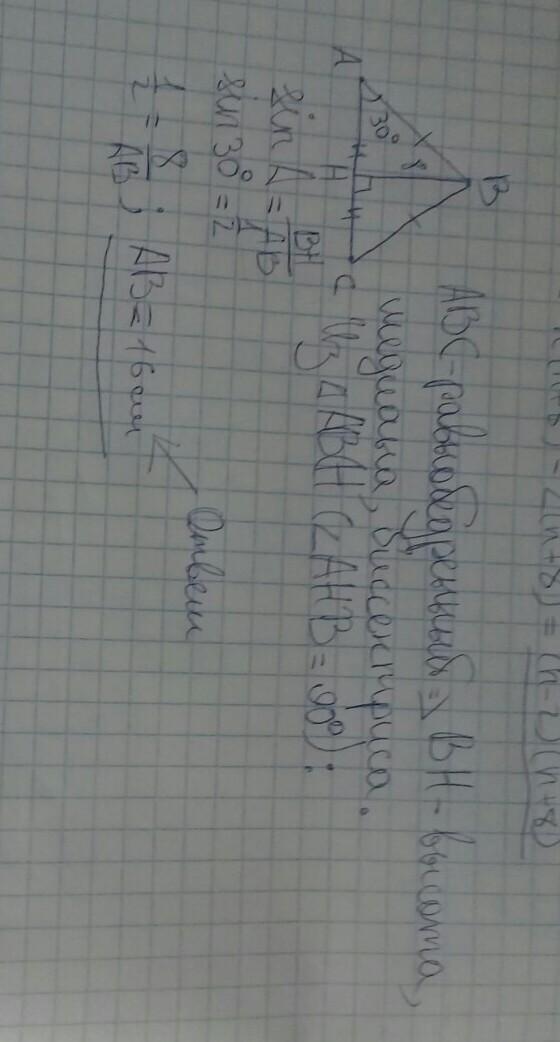 = (n-2)(n+8)
B
8
30°
A
H
C
ABC - равнобедренный => BH - высота,
медиана, биссектриса.
Из △ABH (∠AHB = 90°):
sin A = BH/AB
sin 30° = 1/2
1/2 = 8/AB; AB = 16 см
Ответ